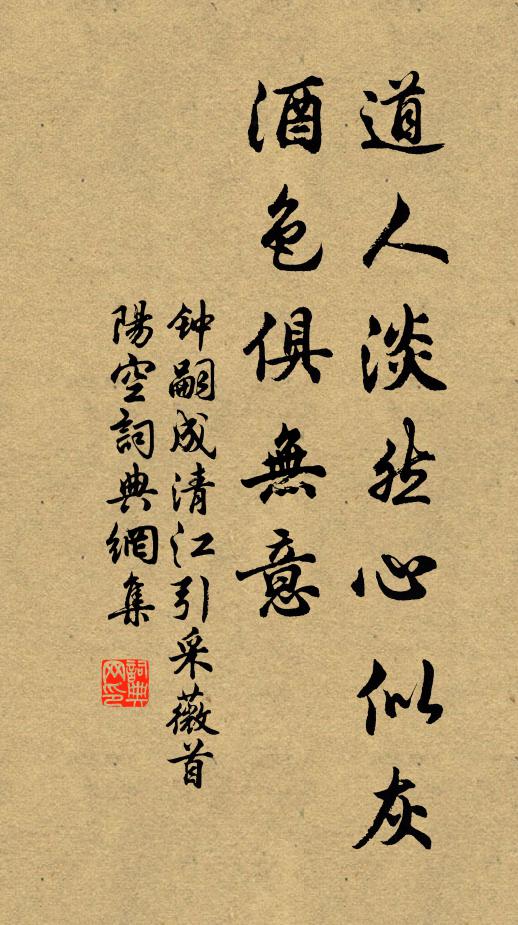 道人淡然心似灰
酒色俱無意
钟嗣成清江引采薇首
陽空詞典網集
詞典
网印